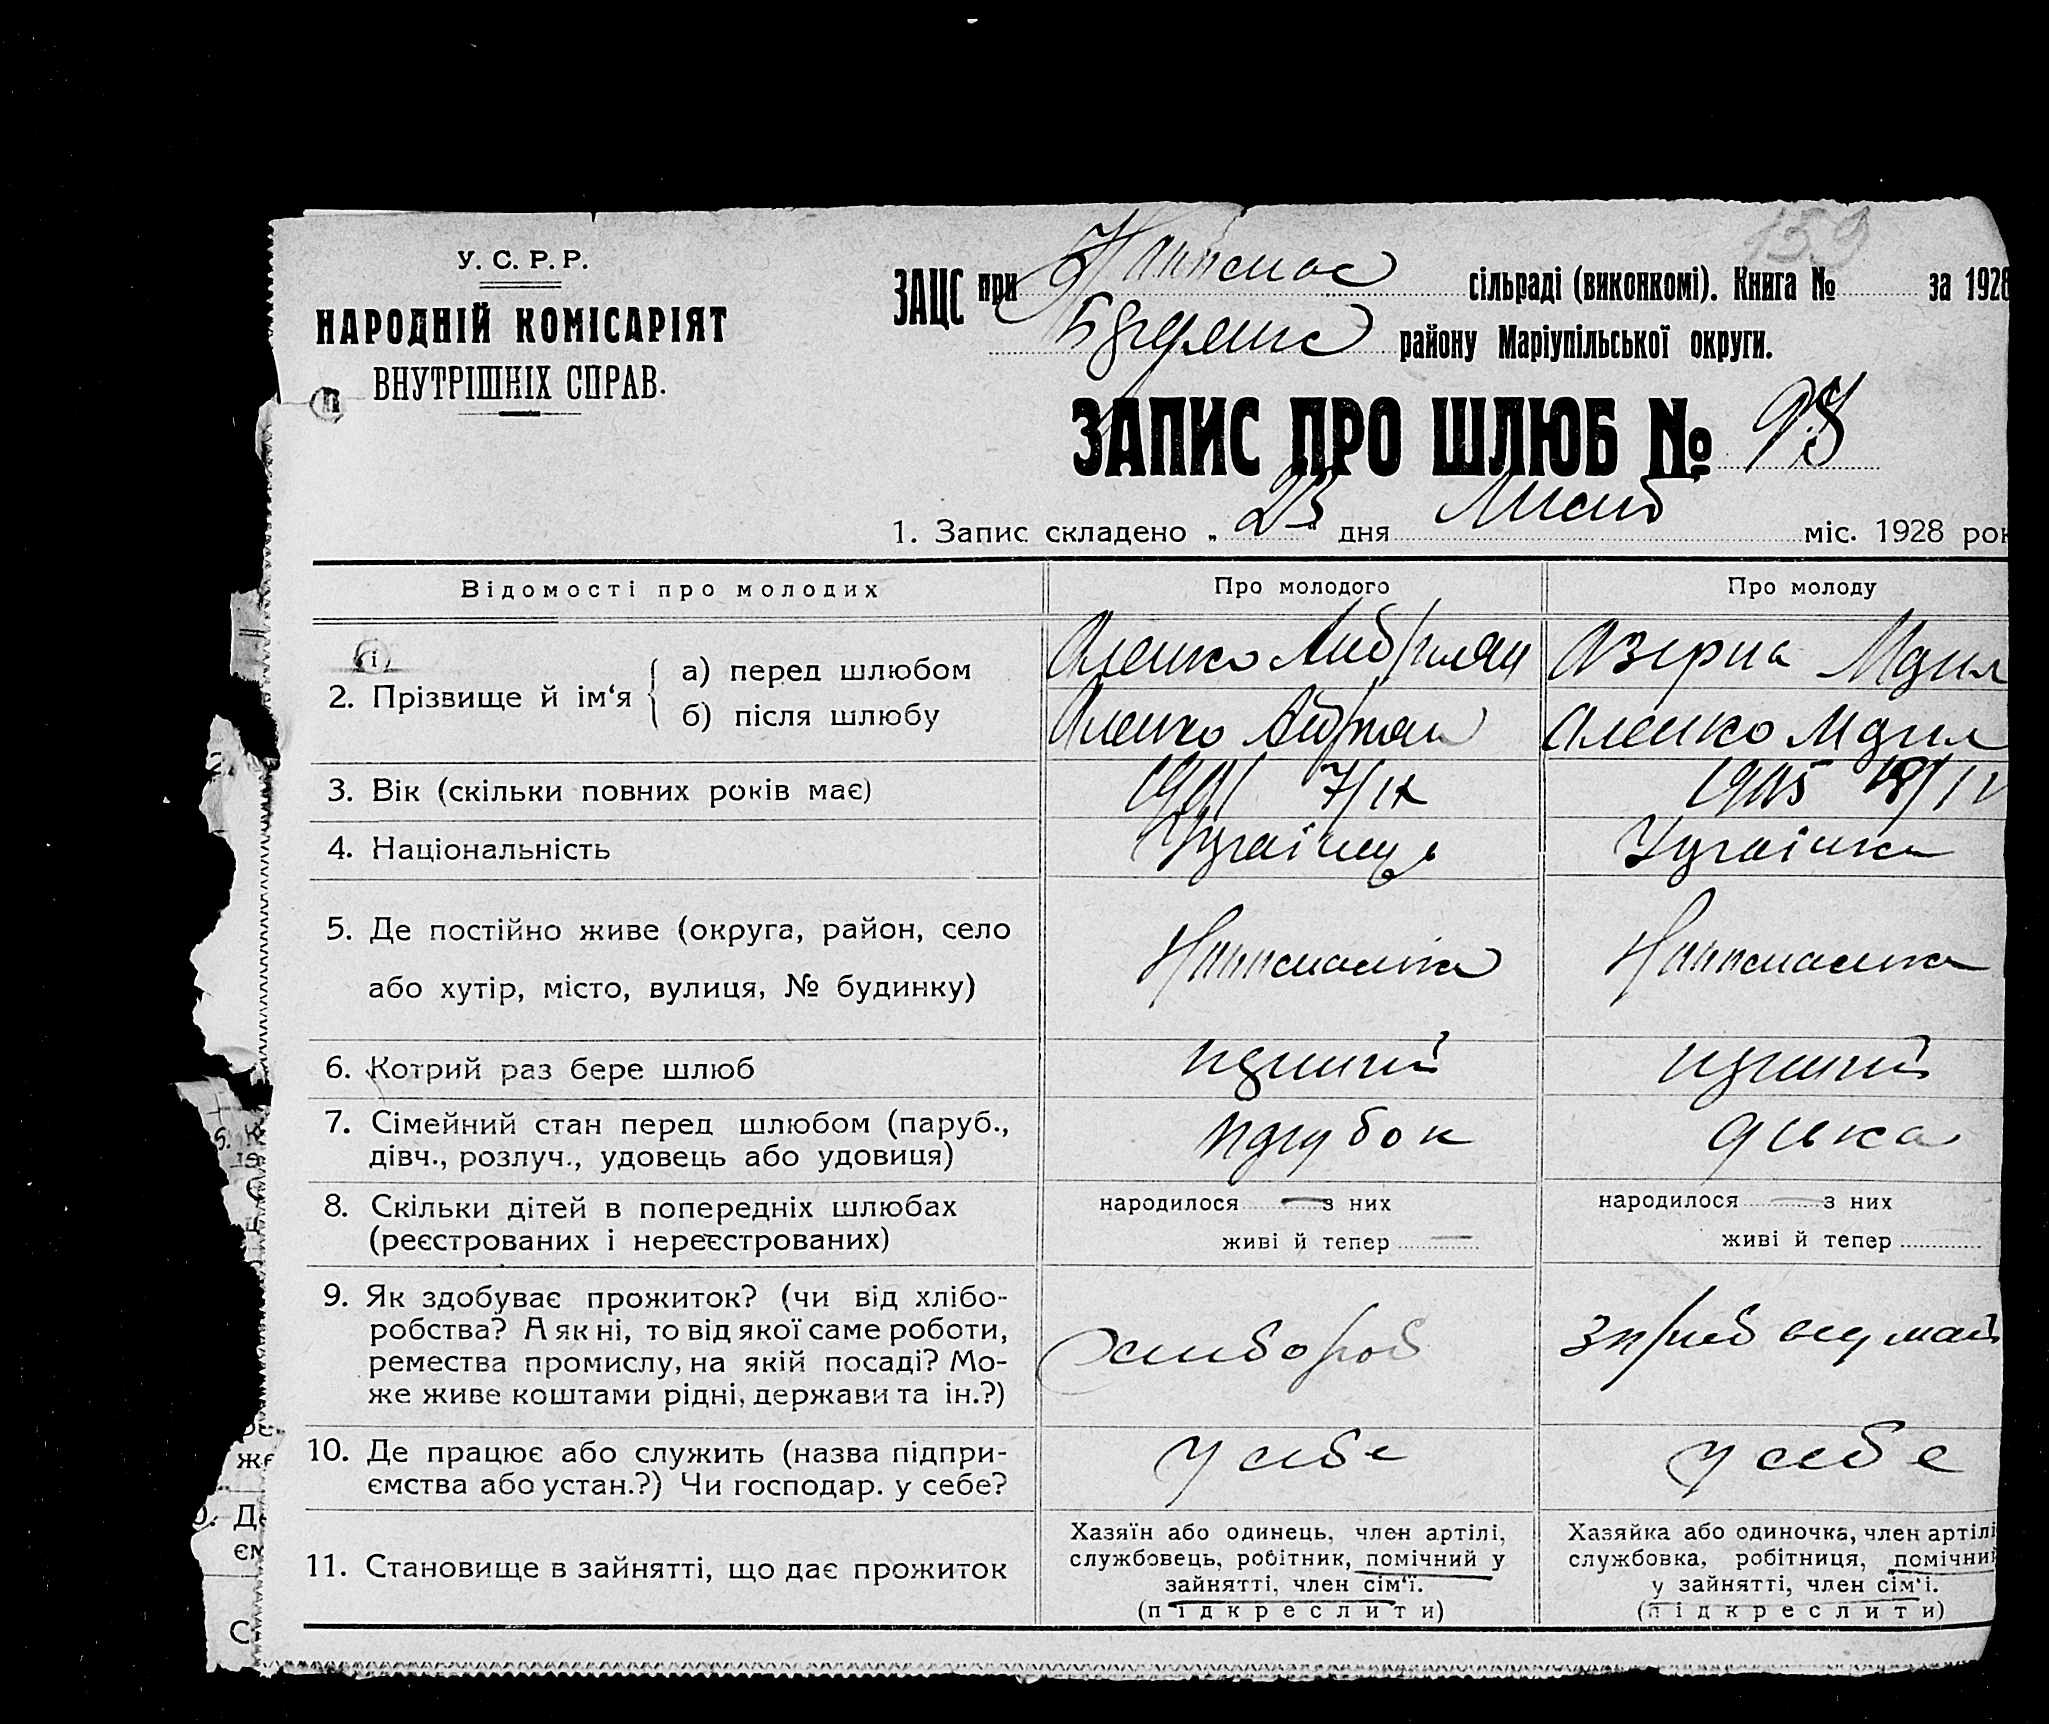 159
У. С. Р. Р.
НАРОДНІЙ КОМІСАРІЯТ
ВНУТРІШНІХ СПРАВ.
ЗАЦС при сільраді (виконкомі). Книга № за 1928
району Маріупільської округи.
ЗАПИС ПРО ШЛЮБ № 98
1. Запис складено „ 23 " дня Лист міс. 1928 рок
Відомості про молодих Про молодого Про молоду
2. Прізвище й ім‘я
а) перед шлюбом Оленко Андріян
б) після шлюбу Оленко Андріян Оленко
3. Вік (скільки повних років має) 1901 7/IX 1905
4. Національність Українець Українка
5. Де постійно живе (округа, район, село
або хутір, місто, вулиця, № будинку)
6. Котрий раз бере шлюб перший перший
7. Сімейний стан перед шлюбом (паруб.,
дівч., розлуч., удовець або удовиця) парубок дівка
8. Скільки дітей в попередніх шлюбах
(реєстрованих і нереєстрованих)
народилося — з них
живі й тепер —
народилося — з них
живі й тепер
9. Як здобуває прожиток? (чи від хлібо-
робства? А як ні, то від якої саме роботи,
ремества промислу, на якій посаді? Мо-
же живе коштами рідні, держави та ін.?)
хлібороб
10. Де працює або служить (назва підпри-
ємства або устан.?) Чи господар. у себе?
у себе у себе
11. Становище в зайнятті, що дає прожиток
Хазяїн або одинець, член артілі,
службовець, робітник, помічний у
зайнятті, член сім‘ї.
(підкреслити)
Хазяйка або одиночка, член артілі
службовка, робітниця, помічний
у зайнятті, член сім‘ї.
(підкреслити)